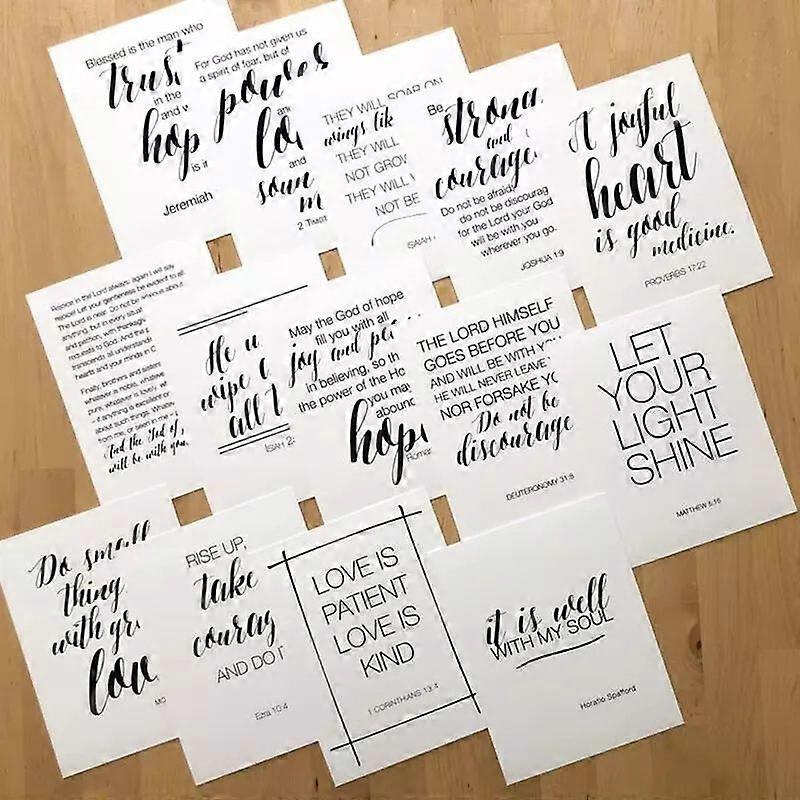 Blessed is the man who
trust
in the
and
hop
is it
Jeremiah
For God has not given us
a spirit of fear, but of
power
and
lo
and
soun
m
2 Timot
THEY WILL SOAR ON
wings lik
THEY WILL
NOT GROW
THEY WILL
NOT BE
ISAIAH
Be
strong
and
courage
Do not be afraid;
do not be discourag
for the Lord your God
will be with you
wherever you go.
JOSHUA 1:9
A joyful
heart
is good
medicine.
PROVERBS 17:22
Rejoice in the Lord always, again I will say
rejoice! Let your gentleness be evident to all.
The Lord is near. Do not be anxious about
anything, but in every situat
and petition, with thanksgiv
requests to God. And the p
transcends all understandin
hearts and your minds in C
Finally, brothers and sisters
whatever is noble, whateve
pure, whatever is lovely, wh
if anything is excellent or
about such things. Whatev
from me, or seen in me
And the God of
will be with you.
He w
wipe
all
ISIAH 2
May the God of hope
fill you with all
joy and pe
in believing, so th
the power of the Ho
you may
abound
hope
Roman
THE LORD HIMSELF
GOES BEFORE YOU
AND WILL BE WITH YO
HE WILL NEVER LEAVE
NOR FORSAKE YO
Do not be
discourage
DEUTERONOMY 31:8
LET
YOUR
LIGHT
SHINE
MATTHEW 5:16
Do small
thing
with gr
love
MO
RISE UP,
take
courag
AND DO I
Ezra 10:4
LOVE IS
PATIENT
LOVE IS
KIND
1 CORINTHIANS 13:4
it is well
WITH MY SOUL
Horatio Spafford